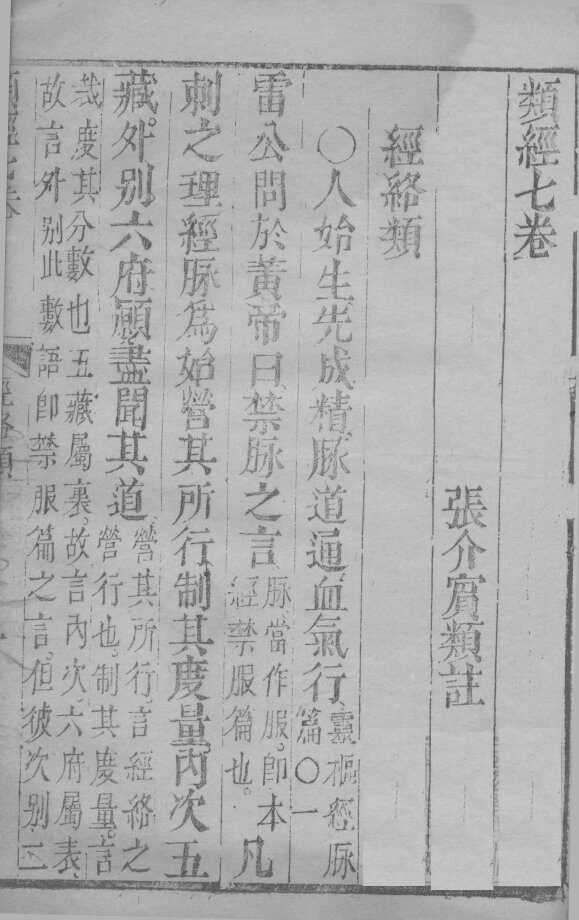 類經七卷
張介賓類註
經絡類
○人始生先成精脉道通血氣行靈樞經脉篇○一
雷公問於黃帝曰禁脉之言脉當作服。即本經禁服篇也。凡
刺之理經脉爲始營其所行制其度量內次五
藏外别六府願盡聞其道營其所行言經絡之營行也。制其度量。言
裁度其分數也五藏屬裏。故言內次六府屬表、
故言外别此數語即禁服篇之言。但彼次别二
經絡類